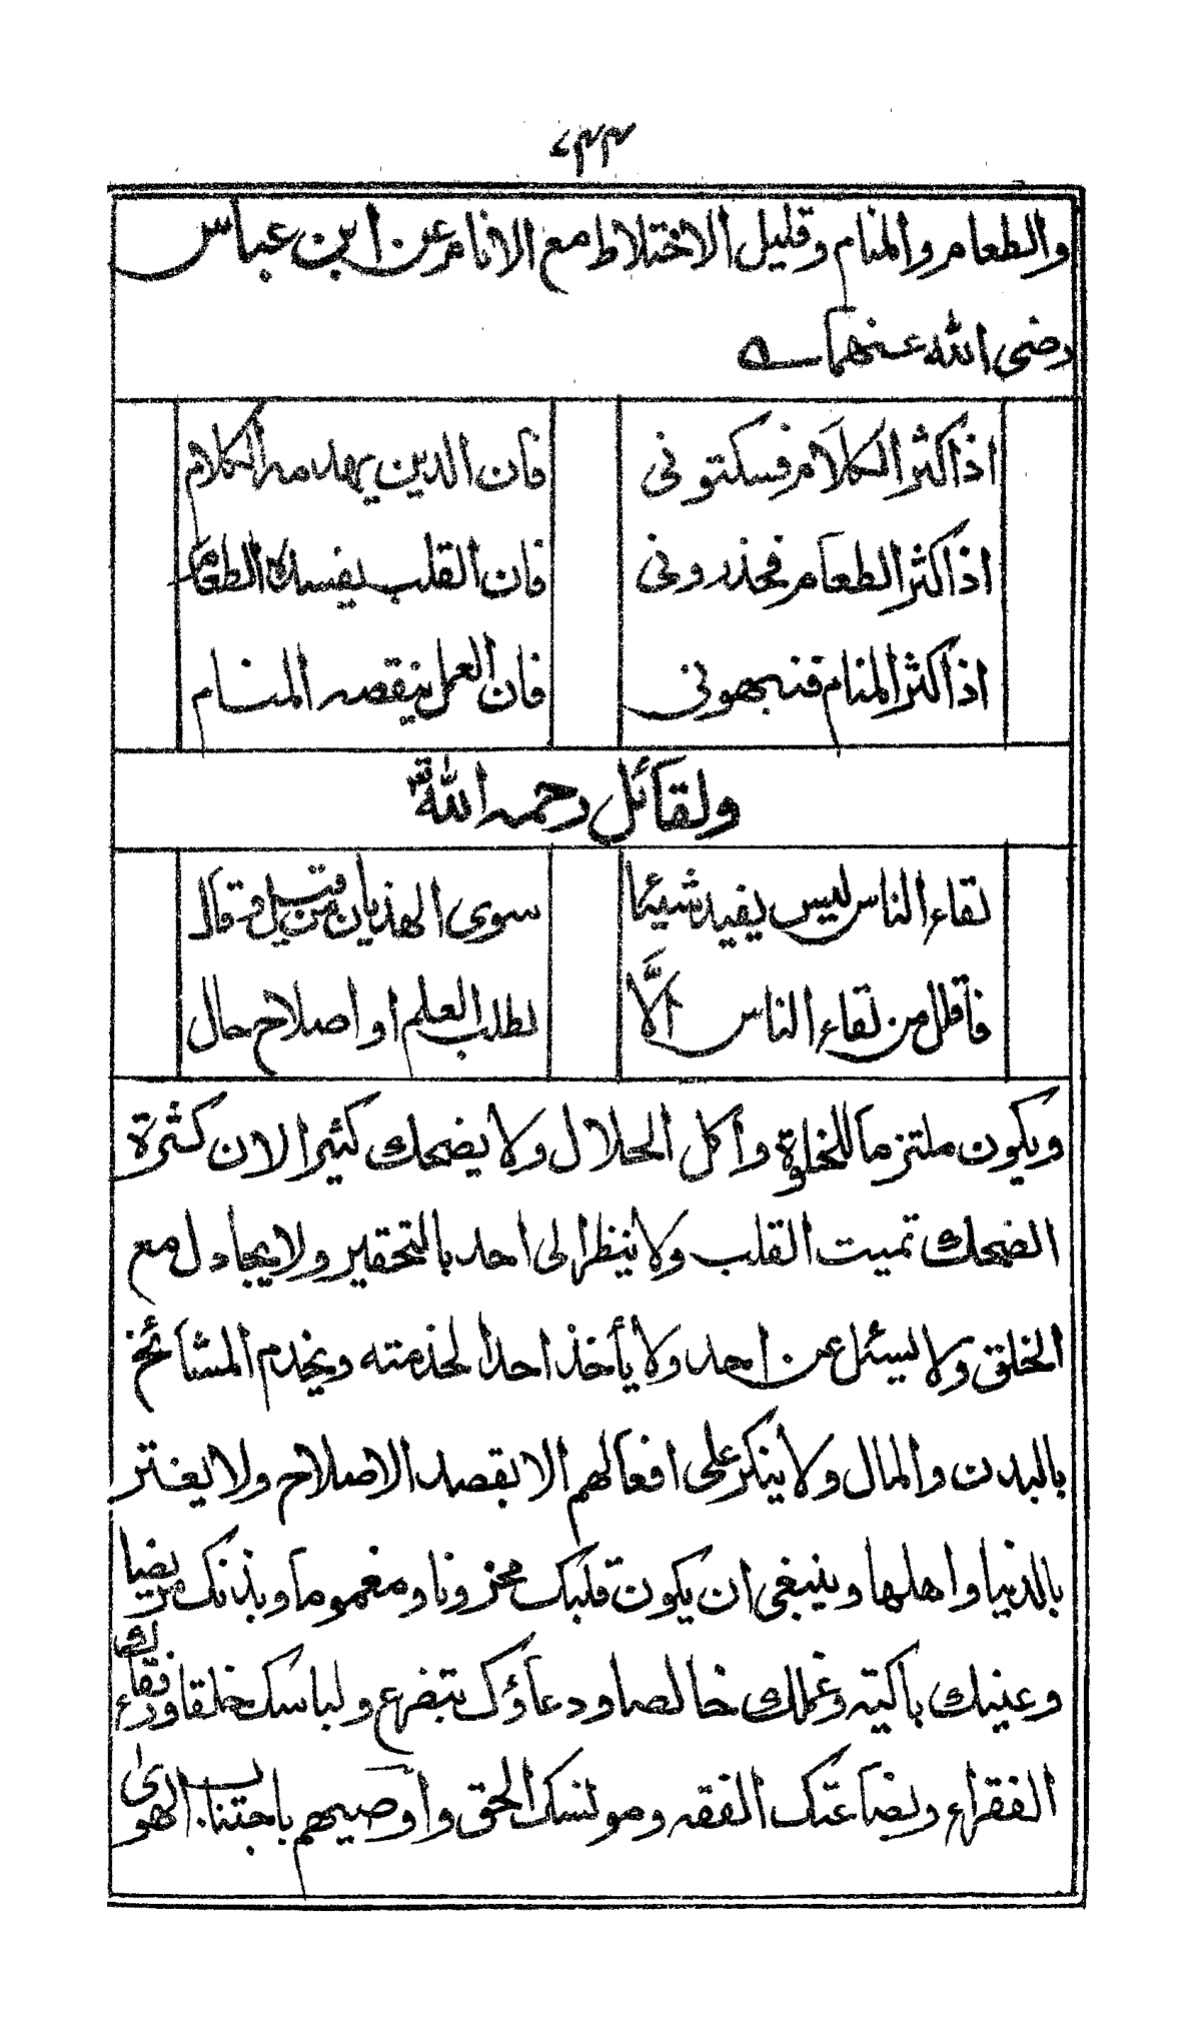 والطعام والمنام وقليل الاختلاط مع الانام عن ابن عباس
رضى الله عنهما
اذا كثر الكلام فسكتونى فان الدين يهدمه الكلام
اذا كثر الطعام فحذرونى فان القلب يفسده الطعام
اذا كثر المنام فنبهونى فان العمل ينقصه المنام
ولقائل رحمه الله
لقاء الناس ليس يفيد شيئا سوى الهذيان من قيل وقال
فاقلل من لقاء الناس الّا لطلب العلم او اصلاح حال
ويكون ملتزما للخلوة وأكل الحلال ولا يضحك كثيرا لان كثرة
الضحك تميت القلب ولا ينظر الى احد بالتحقير ولا يجادل مع
الخلق ولا يسئل عن احد ولا يأخذ احدا لخذمته ويخدم المشائخ
بالبدن والمال ولا ينكر على افعالهم الا بقصد الاصلاح ولا يغتر
بالدنيا واهلها وينبغى ان يكون قلبك محزونا ومغموما وبدنك مريضا
وعينك باكية وعملك خالصا ودعاؤك بتضرع ولباسك خلقا ورفقاءك
الفقراء وبضاعتك الفقه ومونسك الحق واوصيهم باجتناب الهوى